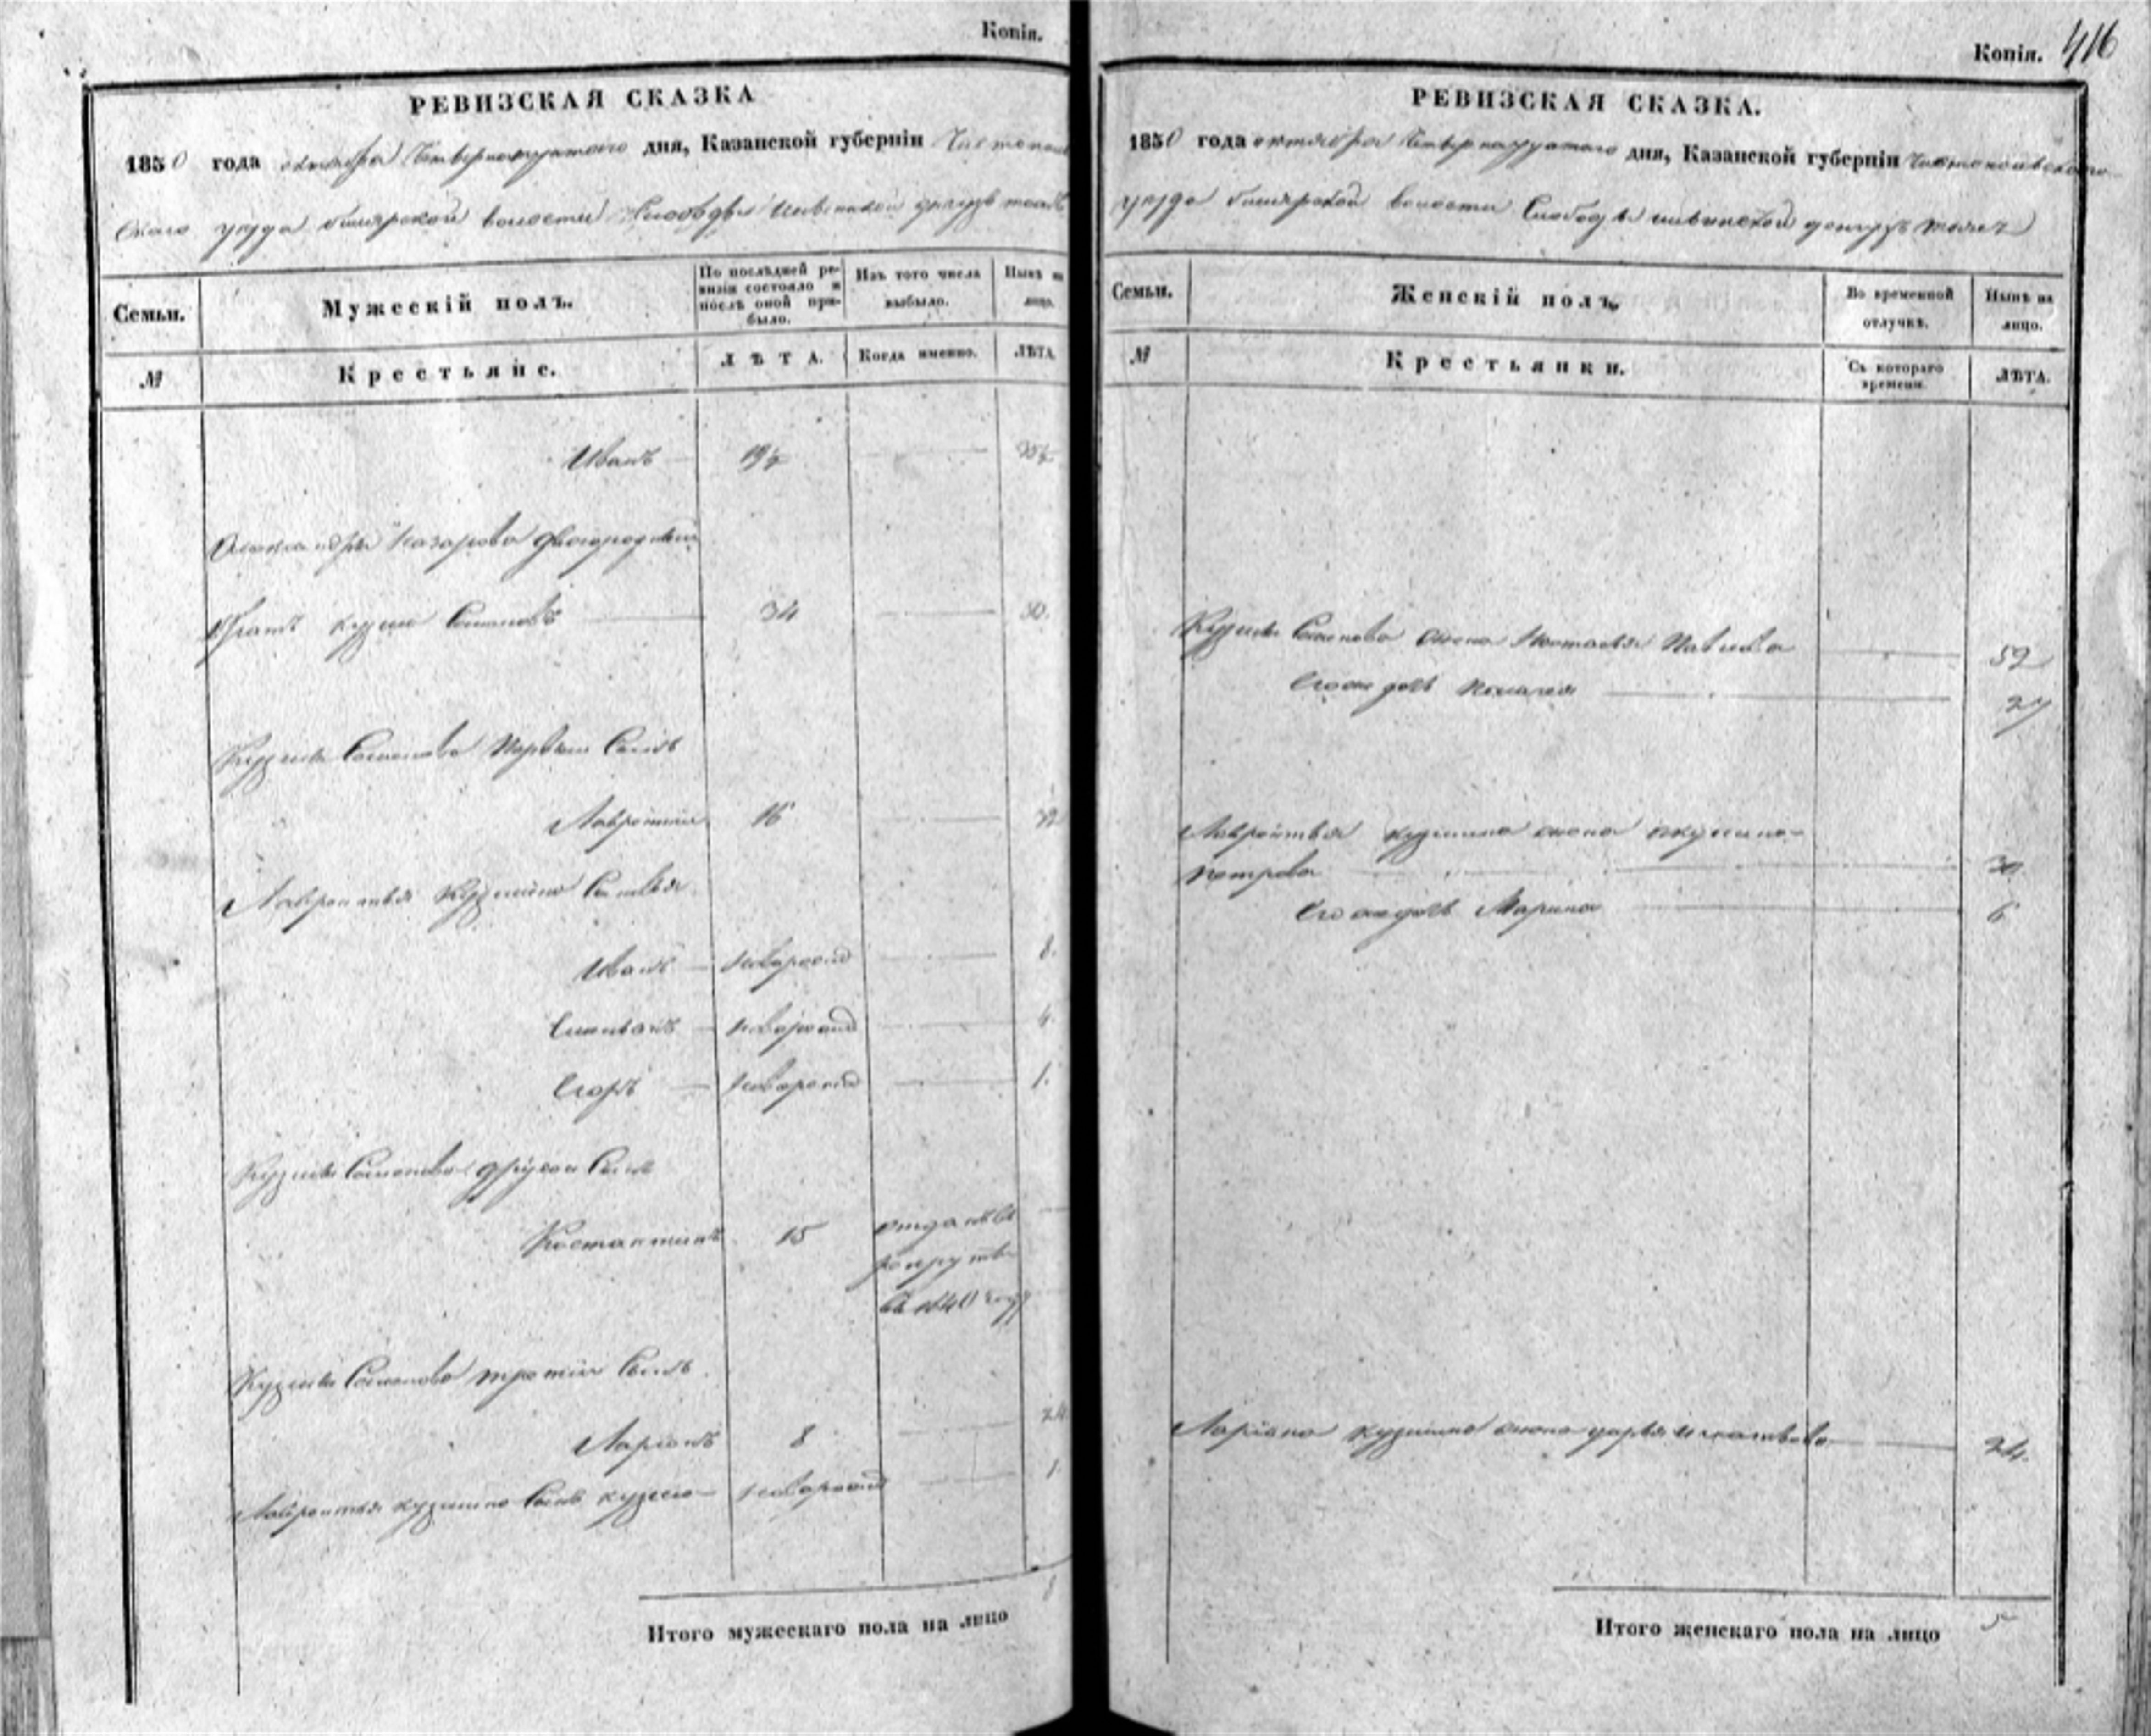 Копія.
РЕВИЗСКАЯ СКАЗКА
1850 года октября Четвернатцатого дня, Казанской губерніи
уезда билярской волости Слободы
Семьи.
Мужескій полъ.
По послѣдней ревизіи состояло и послѣ оной прибыло.
Изъ того числа выбыло.
Нынѣ на лицо.
№
Крестьяне.
ЛѢТА.
Когда именно.
ЛѢТА
Иванъ
Назарова двоюродный
Братъ кузма Семеновъ 34
Кузмы Семенова Первый Сынъ
Лаврентий 16
Лаврентья Кузмина Сыновья
Иванъ новорожд 8.
новорожд 4.
Егоръ новорожд 1.
Кузмы Семенова другой Сынъ
Костантинъ 15 отданъ въ
рекруты
въ 1840 году
Кузмы Семенова третий Сынъ
Ларіонъ 8 24
Лаврентья кузмина Сынъ кузма новорожд 1
Итого мужескаго пола на лицо 8
Копія. 416
РЕВИЗСКАЯ СКАЗКА.
1850 года октября Четвернатцатого дня, Казанской губерніи Чистопольскаго
уезда билярской волости Слободы
Семьи.
Женскій полъ.
Во временной отлучкѣ.
Нынѣ на лицо.
№
Крестьянки.
Съ котораго времени.
ЛѢТА.
Кузмы Семенова жена Настасья 52
Его же дочь Пелагея 27
Лаврентья кузмина жена акулина
петрова 30
Его же дочь Марина 6
Ларіона кузмина жена дарья игнатьева 24.
Итого женскаго пола на лицо 5